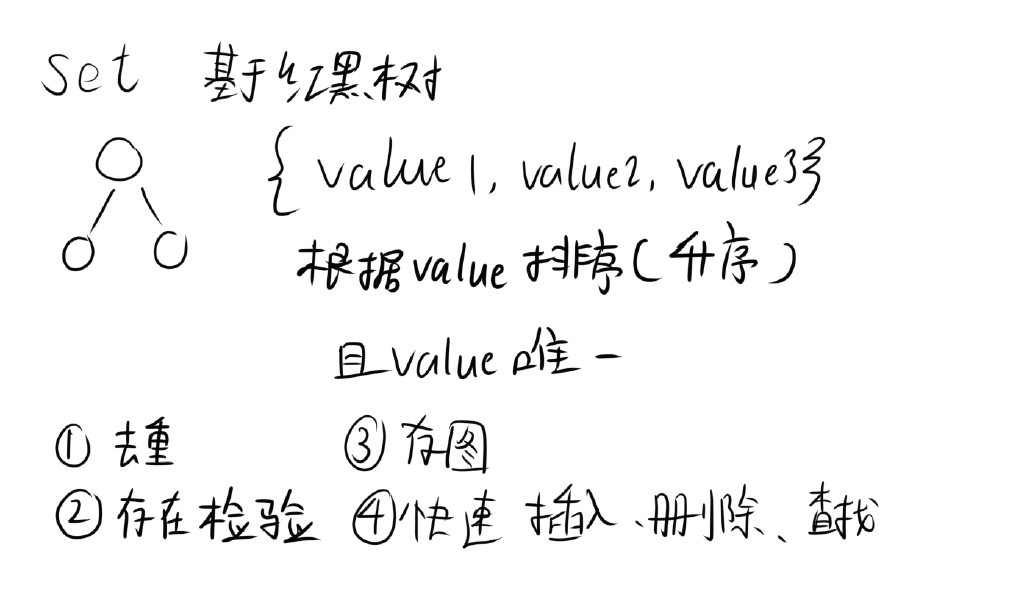 set 基于红黑树
{ value1, value2, value3}
根据value排序(升序)
且value唯一
① 去重 ③ 存图
② 存在检验 ④ 快速 插入、删除、查找